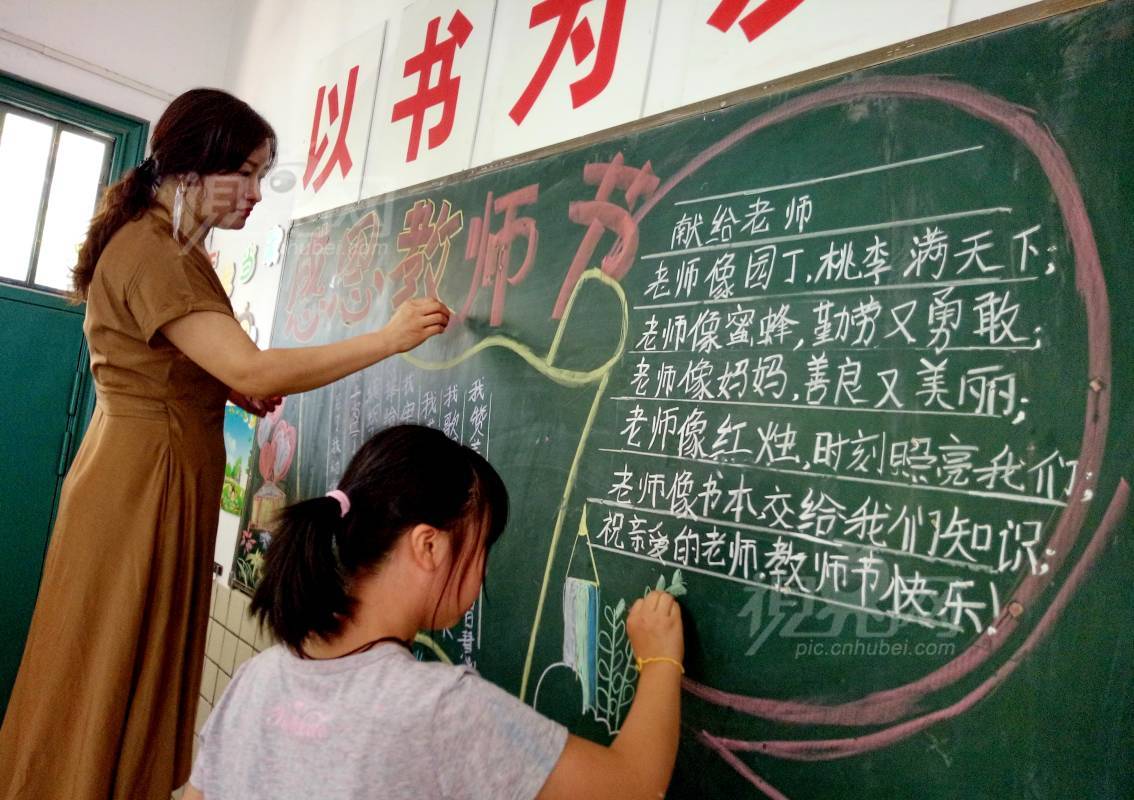 以书为
感恩教师节
献给老师
老师像园丁,桃李满天下;
老师像蜜蜂,勤劳又勇敢;
老师像妈妈,善良又美丽;
老师像红烛,时刻照亮我们;
老师像书本交给我们知识;
祝亲爱的老师.教师节快乐!
我赞美
我歌
我
视界网
pic.cnhubei.com